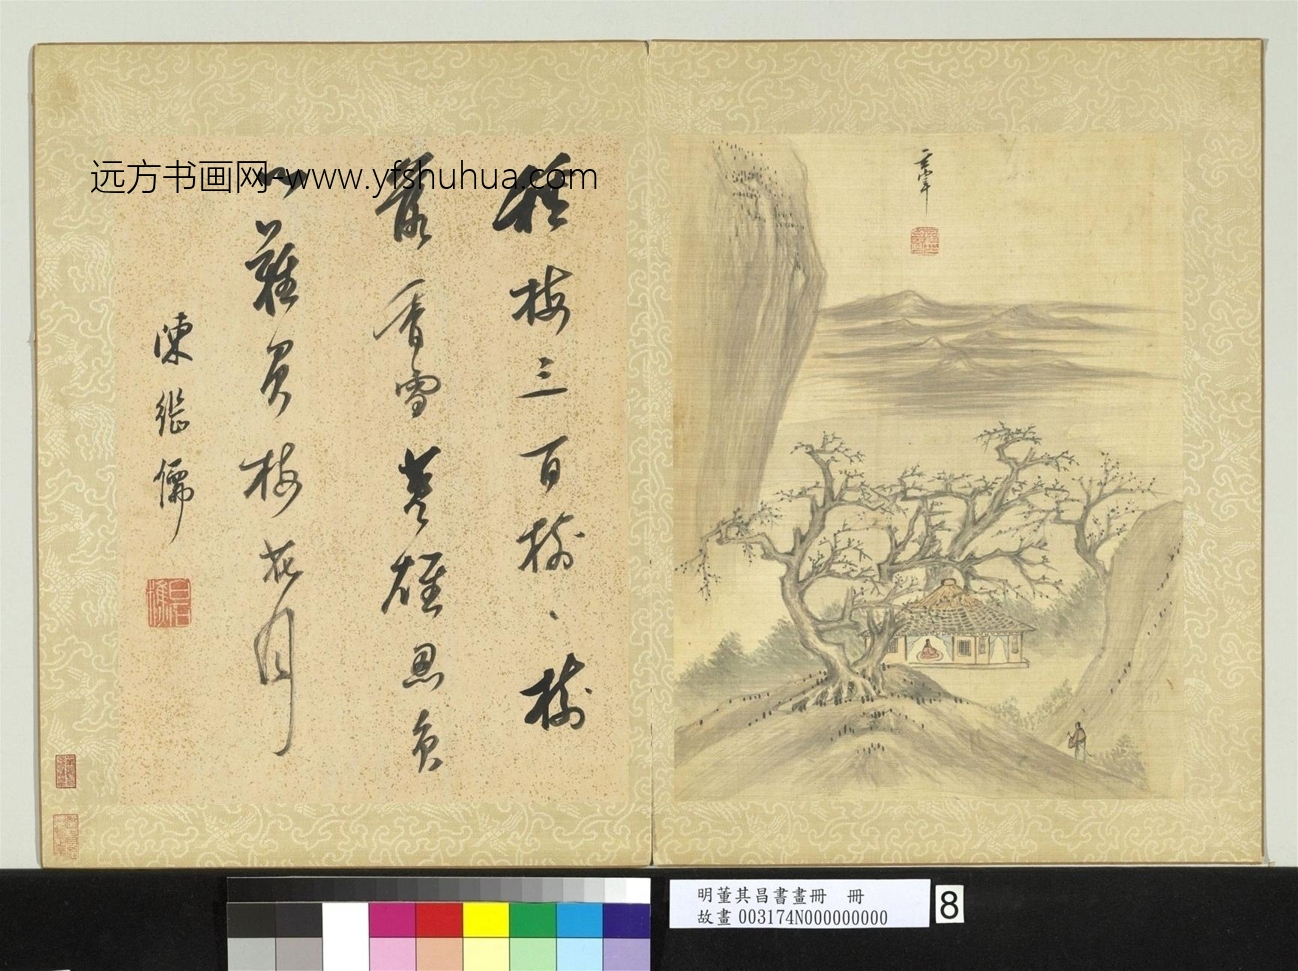 远方书画网-www.yfshuhua.com
玄宰
種梅三百樹、樹
叢香雪英雄忍負
心難負梅花月
陳繼儒
明董其昌書畫冊 冊
故畫 003174N000000000
8